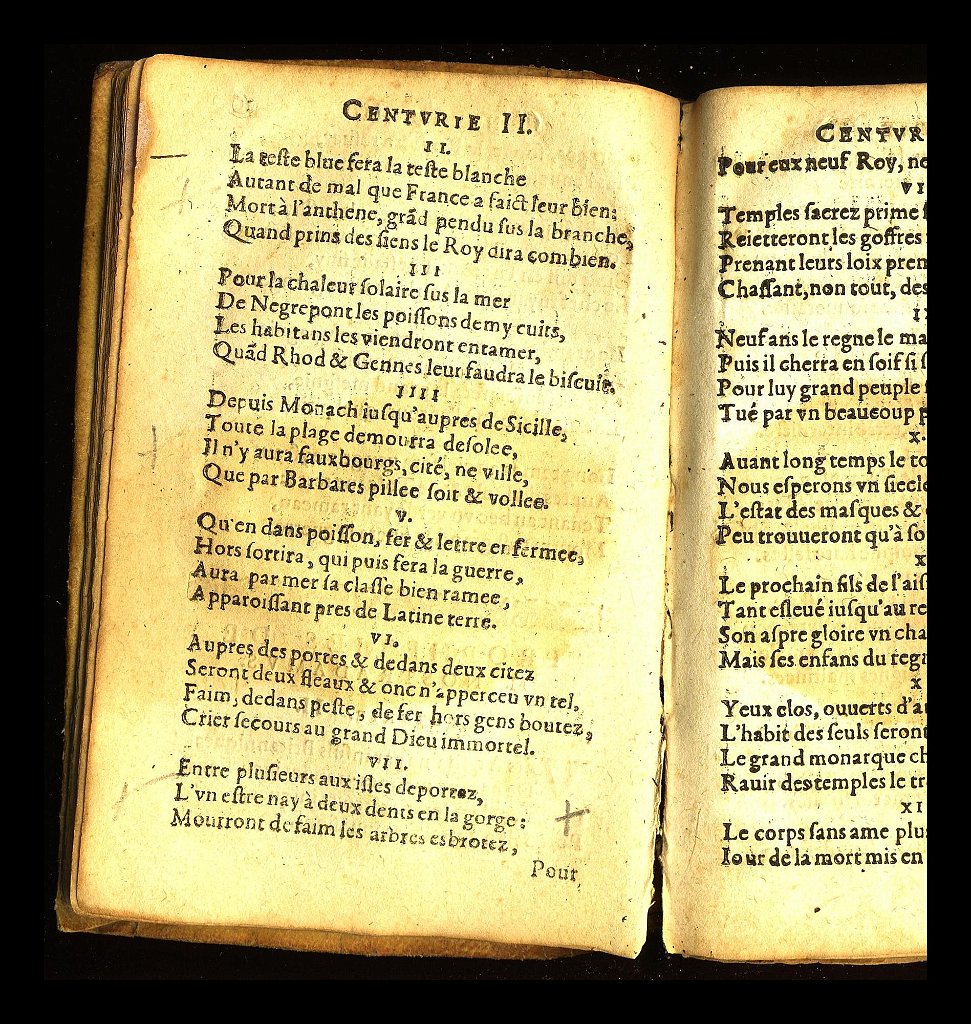 CENTVRIE II.
II.
La teſte blue fera la teſte blanche
Autant de mal que France a faict leur bien:
Mort à l'anthene, grãd pendu ſus la branche,
Quand prins des ſiens le Roy dira combien.
III
Pour la chaleur ſolaire ſus la mer
De Negrepont les poiſſons demy cuits,
Les habitans les viendront entamer,
Quãd Rhod & Gennes leur faudra le biſcuit.
IIII
Depuis Monach iuſqu'aupres de Sicille,
Toute la plage demourra deſolee,
Il n'y aura fauxbourgs, cité, ne ville,
Que par Barbares pillee ſoit & vollee.
V.
Qu'en dans poiſſon, fer & lettre enfermee,
Hors ſortira, qui puis fera la guerre,
Aura par mer ſa claſſe bien ramee,
Apparoiſſant pres de Latine terre.
VI.
Aupres des portes & dedans deux citez
Seront deux fleaux & onc n'apperceu vn tel,
Faim, dedans peſte, de fer hors gens boutez,
Crier ſecours au grand Dieu immortel.
VII.
Entre pluſieurs aux iſles deportez,
L'vn eſtre nay à deux dents en la gorge:
Mourront de faim les arbres esbrotez,
Pour
CENTVR
Pour eux neuf Roy, ne
VI
Temples ſacrez prime
Reietteront les goffres
Prenant leurs loix prem
Chaſſant, non tout, des
I
Neuf ans le regne le ma
Puis il cherra en ſoif ſi ſ
Pour luy grand peuple
Tué par vn beaucoup p
X.
Auant long temps le to
Nous eſperons vn ſiecle
L'eſtat des maſques &
Peu trouueront qu'à ſo
X
Le prochain fils de l'aiſ
Tant eſleué iuſqu'au re
Son aſpre gloire vn cha
Mais ſes enfans du regn
X
Yeux clos, ouuerts d'a
L'habit des ſeuls ſeront
Le grand monarque ch
Rauir des temples le tr
XI
Le corps ſans ame plu
Iour de la mort mis en